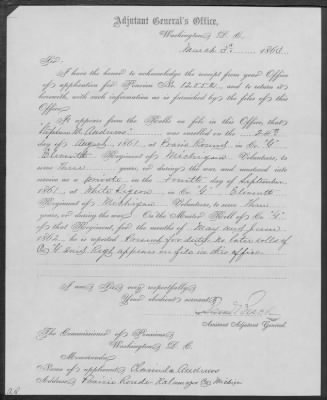 Adjutant General's Office,
Washington, D. C.
March 3d, 186
Sir:
I have the honor to acknowledge the receipt from your Office
of application for Pension No. and to return it
herewith, with such information as is furnished by the files of this
Office.
It appears from the Rolls on file in this Office, that
Andrews was enrolled on the 24th
day of August, 1861, at Prairie Round, in Co. "G"
Eleventh Regiment of Michigan Volunteers, to
serve Three years, or during the war, and mustered into
service as a private on the day of September
1861, at White Pigeon, in Co. "G" Eleventh
Regiment of Michigan Volunteers, to serve Three
years, or during the war. On the Muster Roll of Co. "G"
of that Regiment, for the months of May and June
1862, he is reported Present for duty. No later rolls of
Co. "G" Regt appears on file in this office.
I am, Sir, very respectfully,
Your obedient servant,
Assistant Adjutant General.
The Commissioner of Pensions,
Washington, D. C.
Memoranda:
Name of applicant, Andrews
Address, Prairie Ronde Kalamazoo Co Michigan